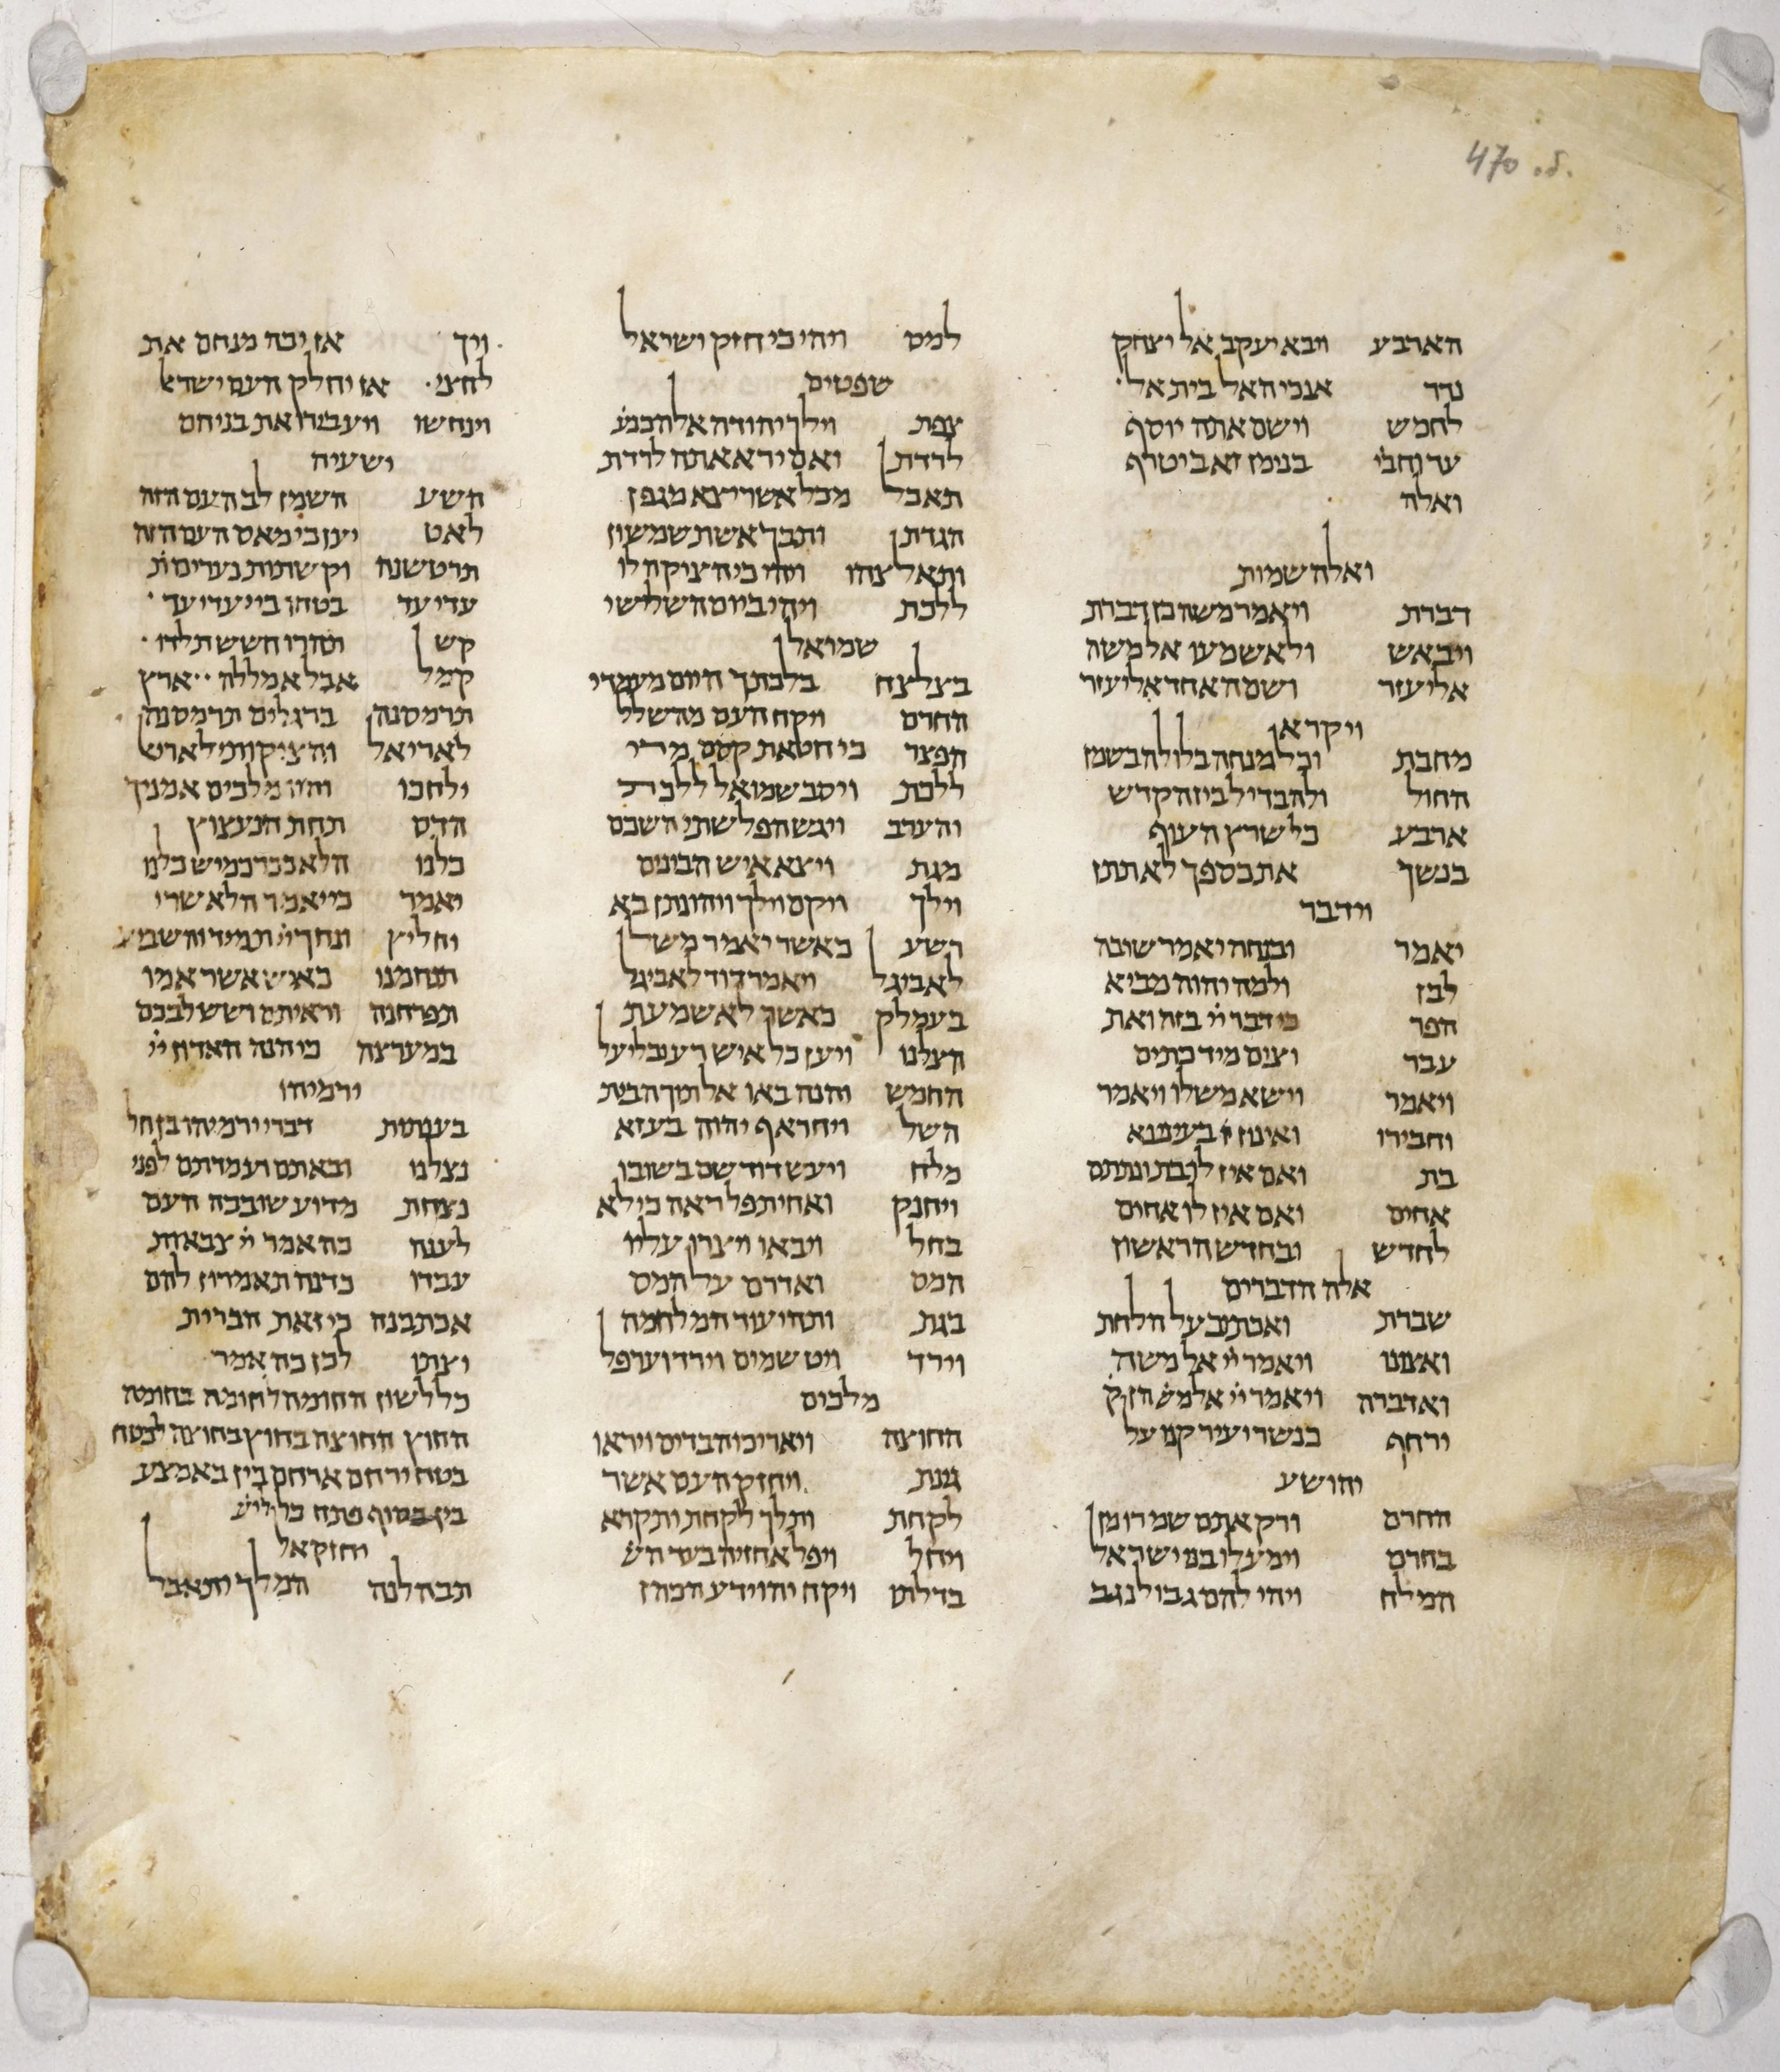 470 .б.
הארבע ויבא יעקב אל יצחק
נדר אנכי האל בית אל
לחמש וישם אתה יוסף
ערוחבי בנימן זאב יטרף
ואלה
ואלה שמות
דברת ויאמר משה כן דברת
ויבאש ולא שמעו אל משה
אליעזר ושם האחד אליעזר
ויקרא
מחבת וכל מנחה בלולה בשמן
החול ולהבדיל בין הקדש
ארבע כל שרץ העוף
בנשך את כספך לא תתן
וידבר
יאמר ובנחה יאמר שובה
לבז ולמה יהוה מביא
הפר כי דבר יי בזה ואת
עבר וצים מיד כתים
ויאמר וישא משלו ויאמר
וחבירו ואינון בעיננא
בת ואם אין לו בת ונתתם
אחים ואם אין לו אחים
לחדש ובחדש הראשון
אלה הדברים
שברת ואכתב על הלחת
ואצונו ויאמר יי אל משה
ואדברה ויאמר יי אל מש הזקן
ירחף כנשר יעיר קנו על
יהושע
החרם ורק אתם שמרו מן
בחרם וימעלו בני ישראל
המלח ויהי להם גבול נגב
למס ויהי כי חזק ישראל
שפטים
צפת וילך יהודה אל הכנע
לרדת ואם ירא אתה לרדת
תאכל מכל אשר יצא מגפן
הגדתן ותבך אשת שמשון
ותאלצהו ויהי כי הציקה לו
ללכת ויהי ביום השלישי
שמואל
בצלצח בלכתך היום מעמדי
החרם ויקח העם מהשלל
הפצר כי חטאת קסם מרי
ללכת ויסב שמואל ללכת
והערב ויגש הפלשתי השכם
מגת ויצא איש הבינים
וילך ויקם וילך ויהונתן בא
רשע כאשר יאמר משל
לאביגל ויאמר דוד לאביגל
בעמלק כאשר לא שמעת
הצלנו ויען כל איש רע ובליעל
החמש והנה באו אל תוך הבית
השל ויחר אף יהוה בעזא
מלח ויעש דוד שם בשובו
ויחנק ואחיתפל ראה כי לא
בחל ויבאו ויצרו עליו
המס ואדרם על המס
בגת ותהי עוד המלחמה
וירד ויט שמים וירד וערפל
מלכים
החוצה ויאריכו הבדים ויראו
גינת ויחזק העם אשר
לקחת ותלך לקחת ויקרא
ויחל ויפל אחזיה בעד הש
בדלתו ויקח יהוידע הכהן
ויך אז יכה מנחם את
לחצי אז יחלק העם ישראל
וינחשו ויעבירו את בניהם
ישעיה
השע השמן לב העם הזה
לאט יען כי מאס העם הזה
תרטשנה וקשתות נערים ת
עדי עד בטחו ביי עדי עד
קש תהרו חשש תלדו
קמל אבל אמללה ארץ
תרמסנה ברגלים תרמסנה
לאריאל והציקותי לאריא
ילחכו והיו מלכים אמניך
הדס תחת הנעצוץ
כלנו הלא ככרכמיש כלנו
יאמר כי יאמר הלא שרי
יחליץ ונחך יי תמיד והשביע
תנחמנו כאיש אשר אמו
תפרחנה וראיתם ושש לבכם
במערצה כי הנה האדון יי
ירמיהו
בענתות דברי ירמיהו בן חל
נצלנו ובאתם ועמדתם לפני
נצחת מדוע שובבה העם
לענה כה אמר יי צבאות
עבדו כדנה תאמרון להם
אכתבנה כי זאת הברית
יצתו לכן כה אמר
כל לשון החומה לחומה בחומה
החוץ החוצה בחוץ בחוצה לבטח
בטח ירחם ארחם בין באמצע
בין בסוף פתח
יחזקאל
תבהלנה המלך יתאבל